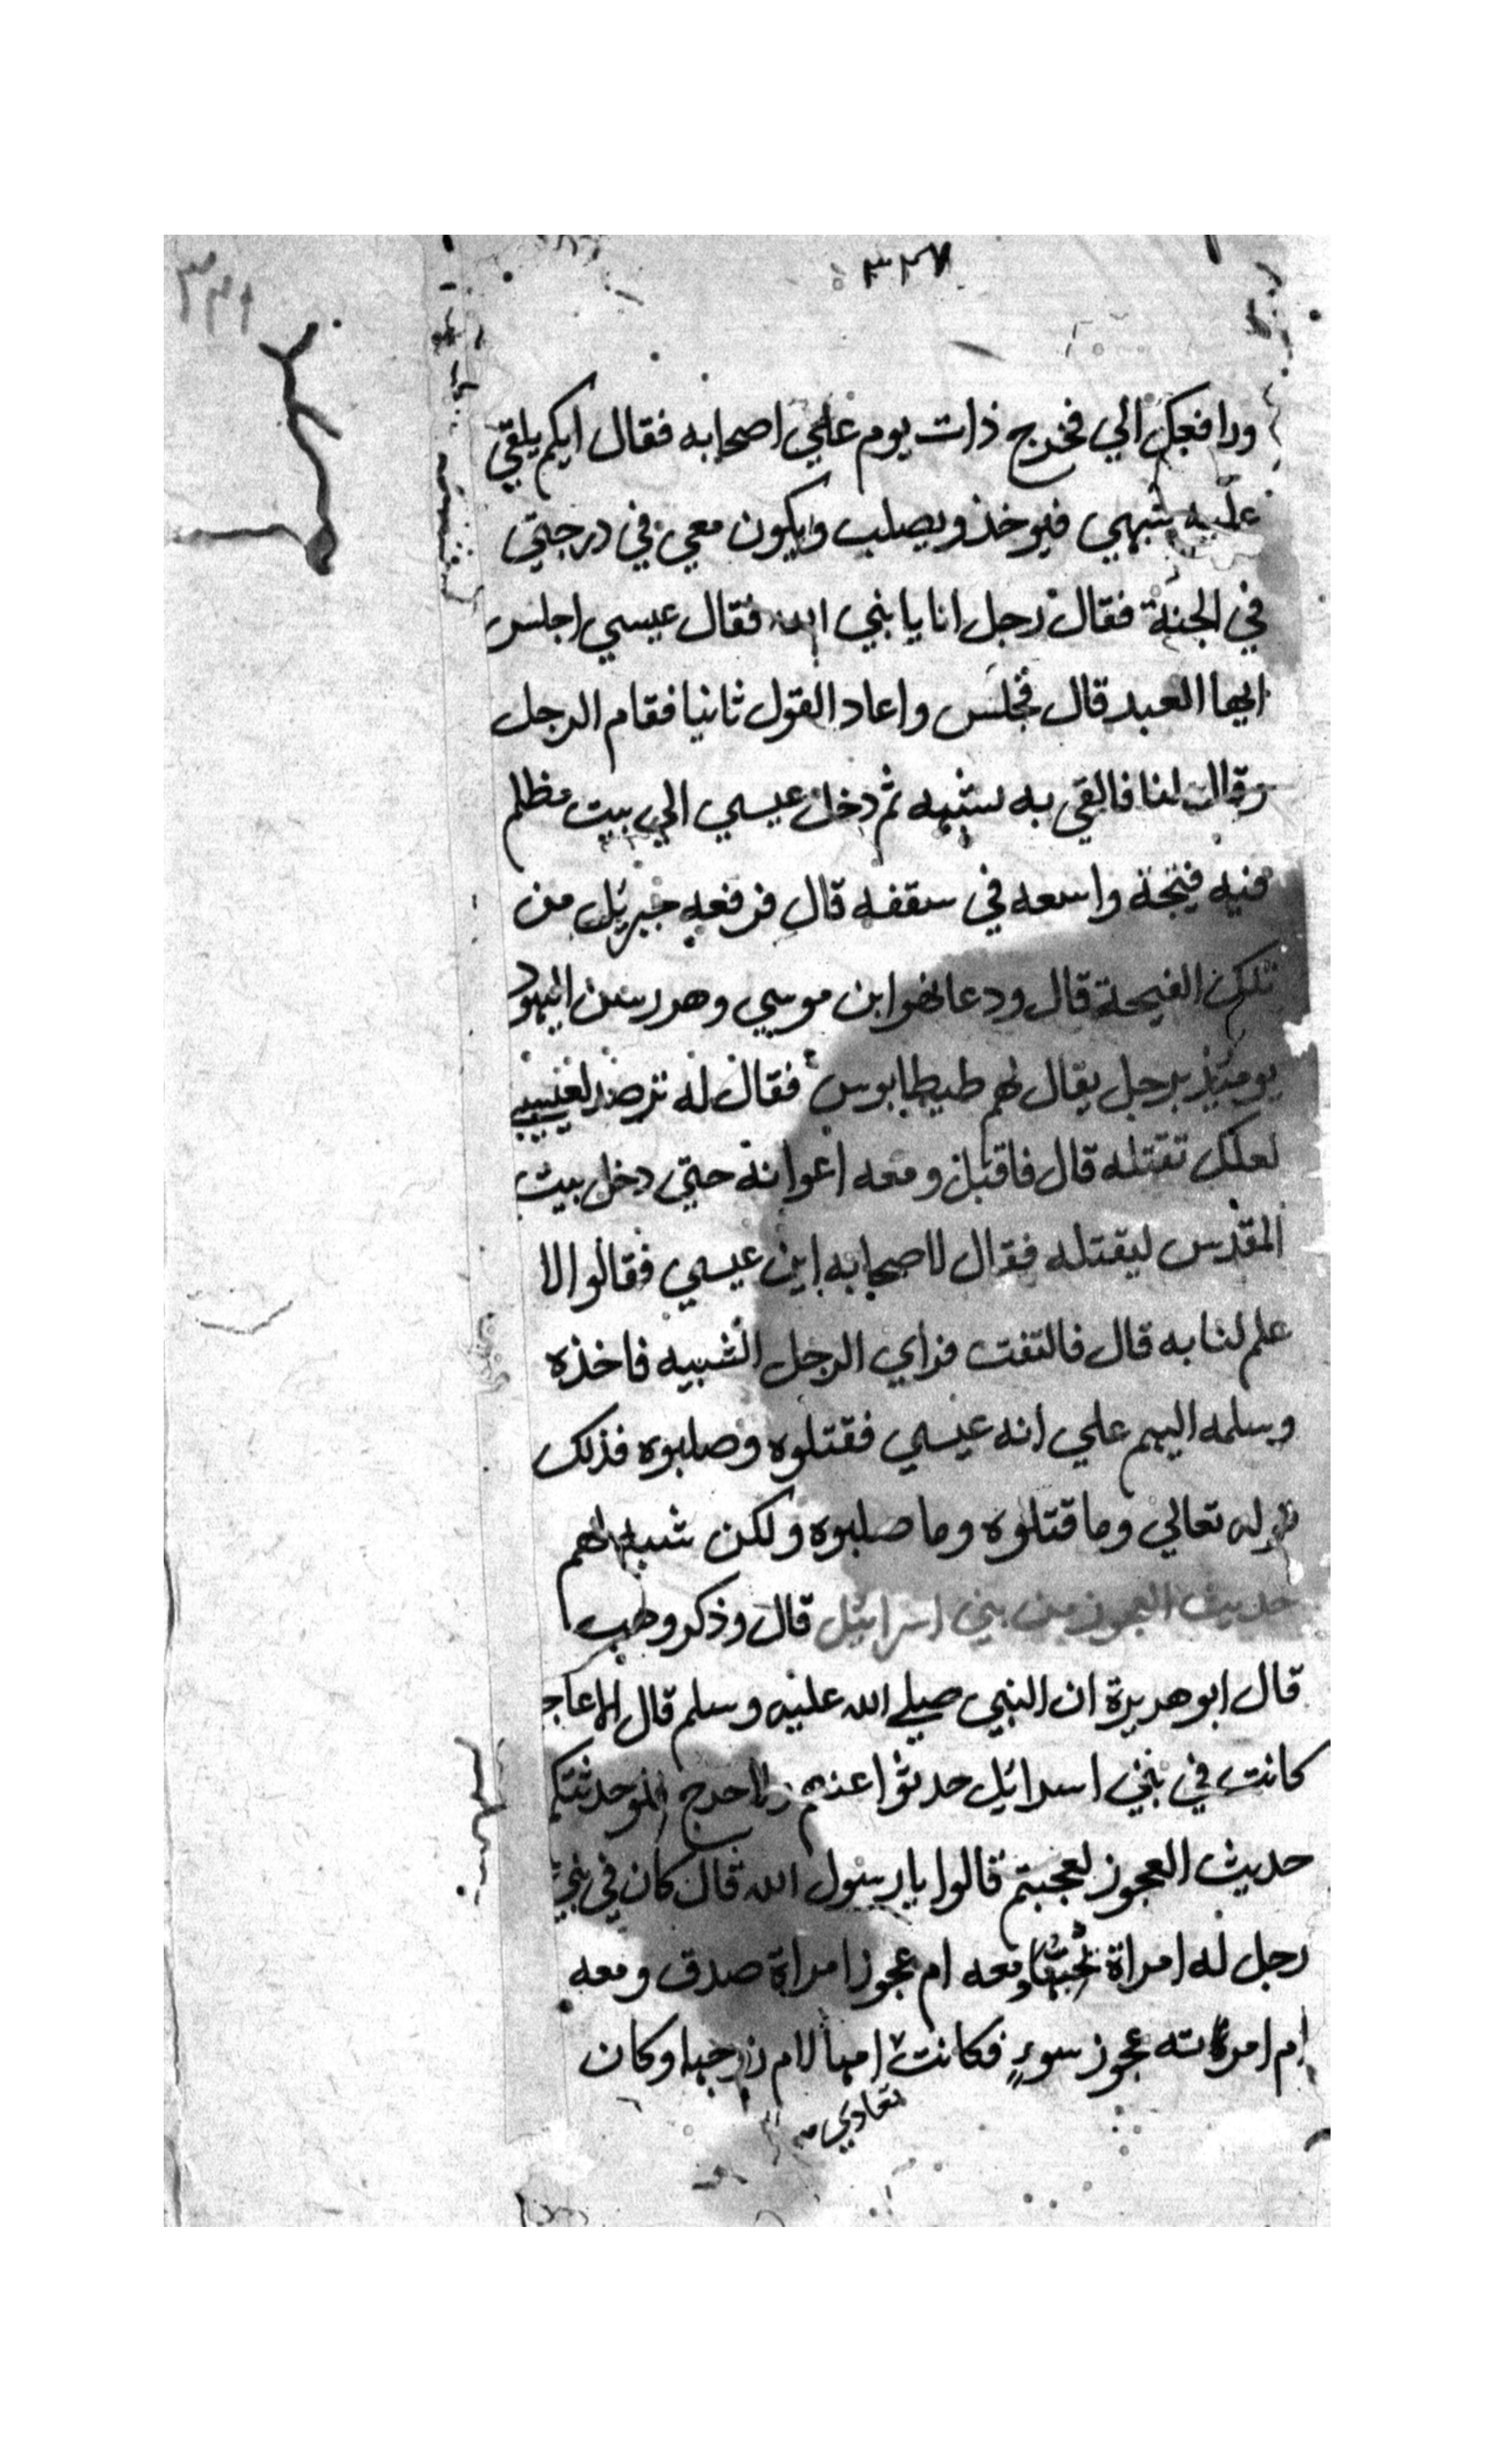 ٣٢٧
ورافعك الي فخرج ذات يوم علي اصحابه فقال ايكم يلقي
عليه شبهي فيوخذ ويصلب ويكون معي في درجتي
في الجنة فقال رجل انا يا نبي الله فقال عيسي اجلس
ايها العبد قال فجلس واعاد القول ثانيا فقام الرجل
وقال انا فالقي به شبه ثم دخل عيسي الي بيت مظلم
فيه فيتحة واسعه في سقفه قال فرفعه جبريل من
تلك الفيحة قال ودعا ابن موسي وهو اليهود
يوميذ برجل يقال لهم طيطابوس فقال له
لعلك تقتله قال فاقبل ومعه اعوانه حتي دخل بيت
المقدس ليقتله فقال لاصحابه اين عيسي فقالوا لا
علم لنا به قال فالتفت فراي الرجل الشبيه فاخذه
وسلمه اليهم علي انه عيسي فقتلوه وصلبوه فذلك
قوله تعالي وما قتلوه وما صلبوه ولكن شبه لهم
حديث العجوز من بني اسرائيل قال وذكر وهب
قال ابو هريرة ان النبي صلي الله عليه وسلم قال
كانت في بني اسرائيل حدثوا عنهم ولا حرج لو حدثتكم
حديث العجوز لعجبتم قالوا يا رسول الله قال كان في بني
رجل له امراة يحبها ومعه ام عجوز امراة صدق ومعه
ام امراته عجوز سوء فكانت امها لام زوجها وكان
تعادي